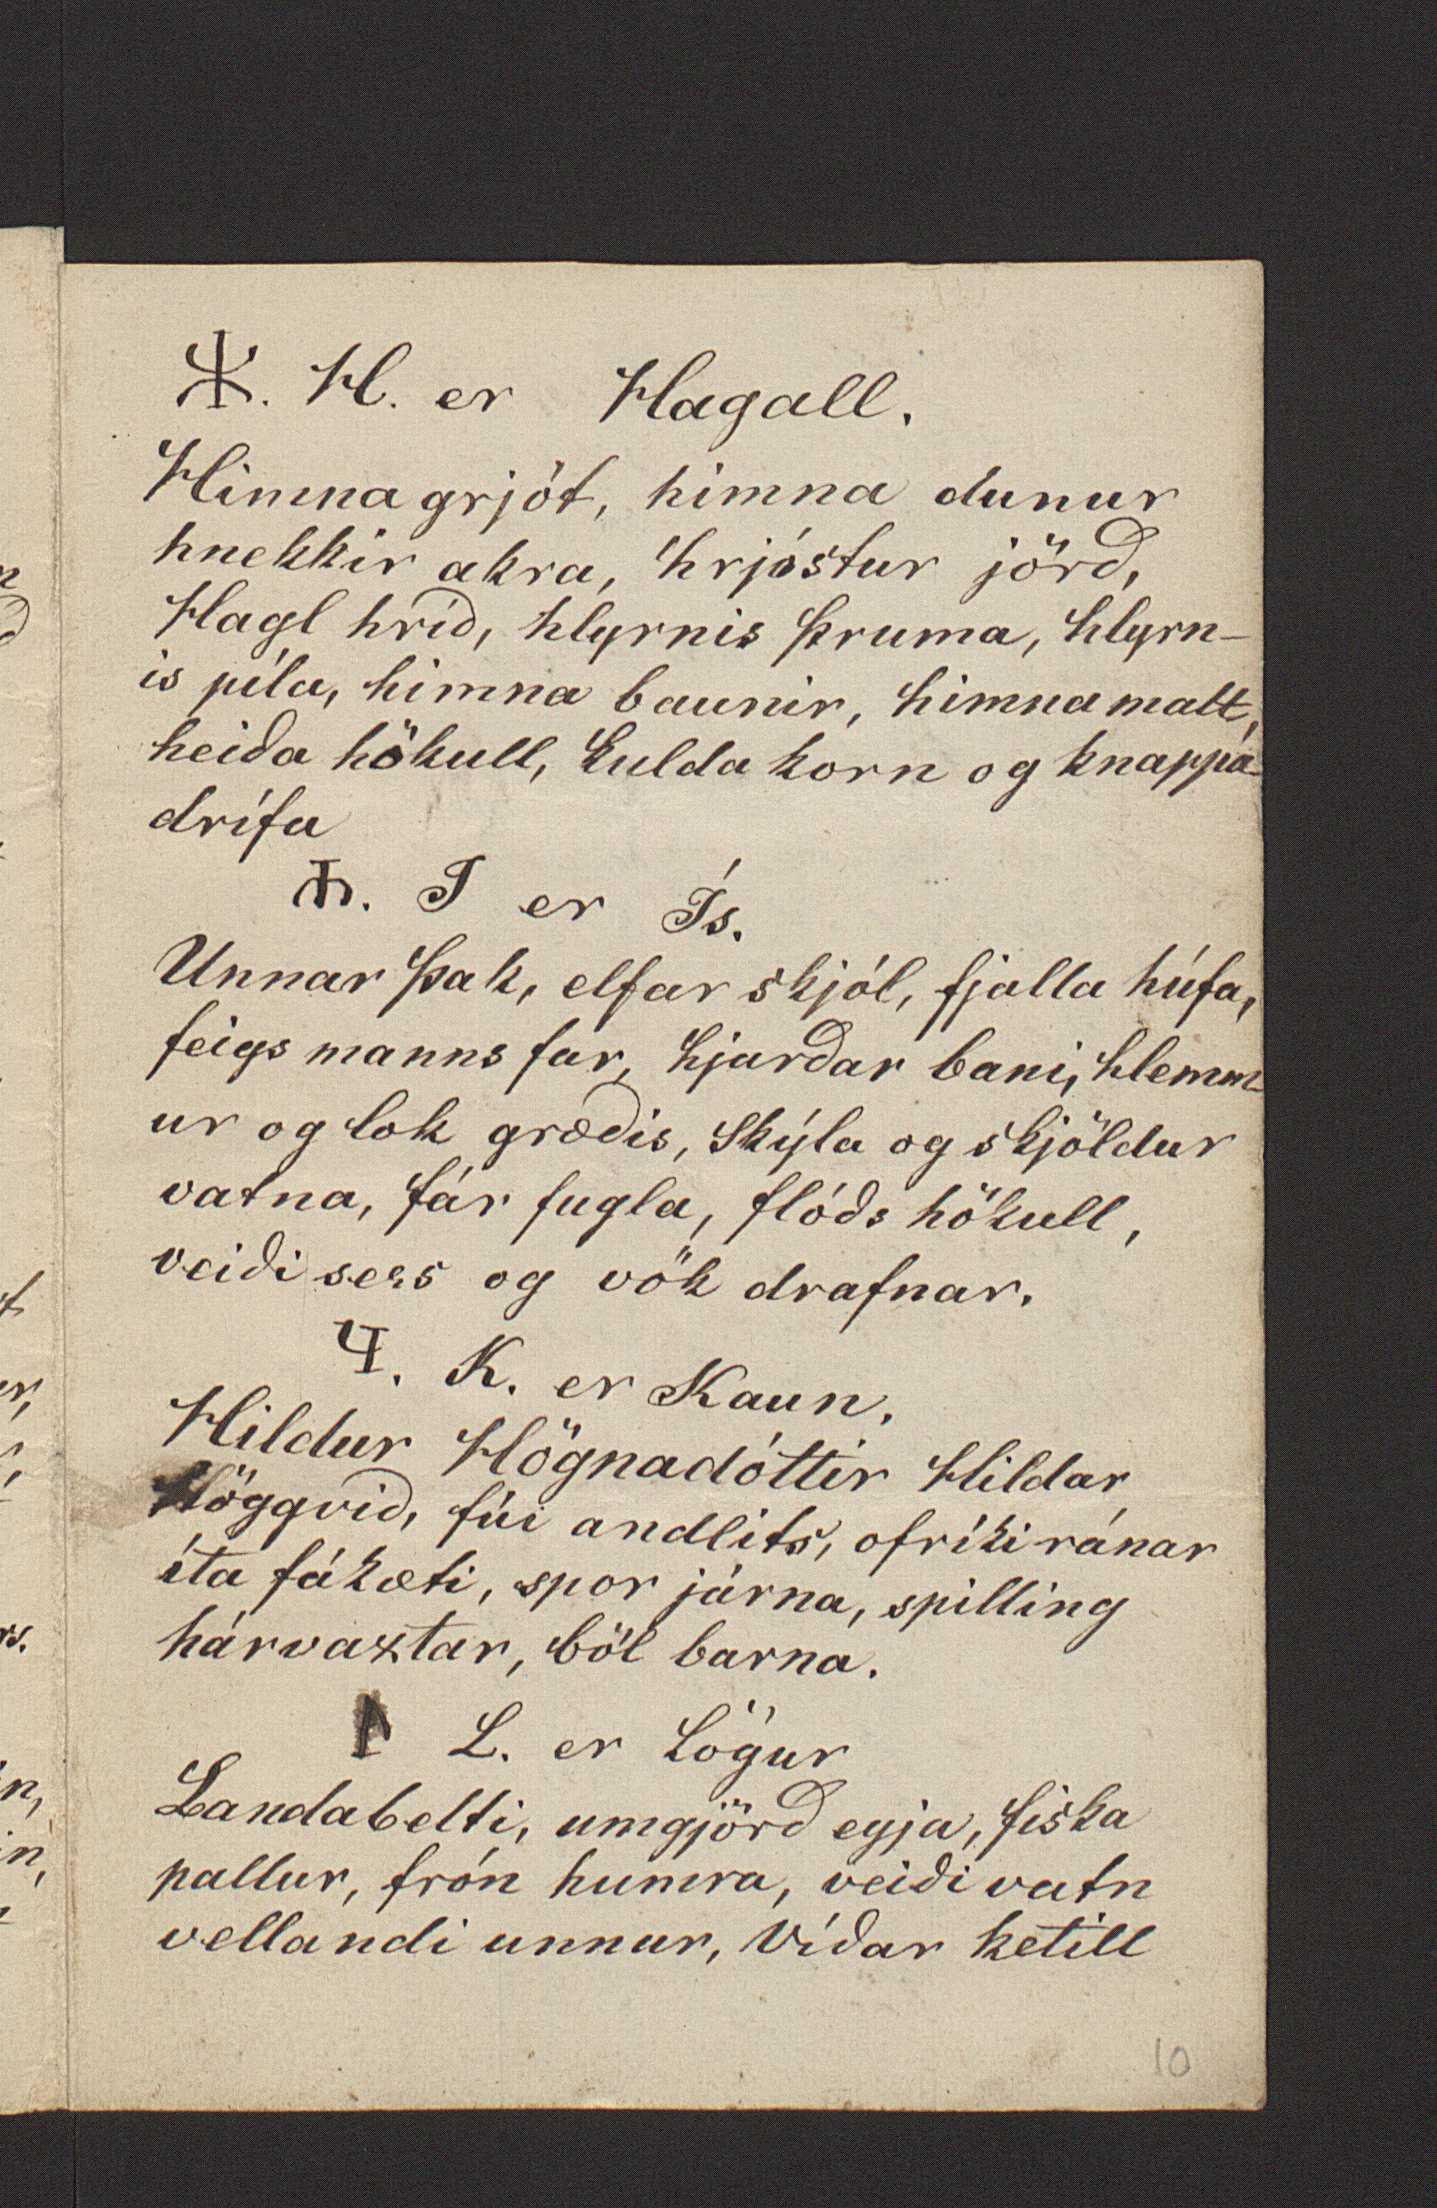 ᚼ. H. er Hagall.
Himna grjót, himna dunur
hnekkir akra, hrjóstur jörð,
Hagl hríð, hlyrnis þruma, hlyrn-
is píla, himna baunir, himna malt,
heiða hökull, kulda korn og knappa-
drífa
I er Ís.
Unnar þak, elfar skjól, fjalla húfa,
feigs manns far, hjarðar bani, hlemm-
ur og lok græðis, skýla og skjöldur
vatna, fár fugla, flóðs hökull,
veiði sess og vök drafnar.
K. er Kaun.
Hildur Högnadóttir Hildar
Höggvið, fúi andlits, ofríki ránar
íta fákæti, spor járna, spilling
hárvaxtar, böl barna.
ᛚ L. er Lögur
Landabelti, umgjörð eyja, fiska
pallur, frón humra, veiði vatn
vellandi unnur, Víðar ketill
10